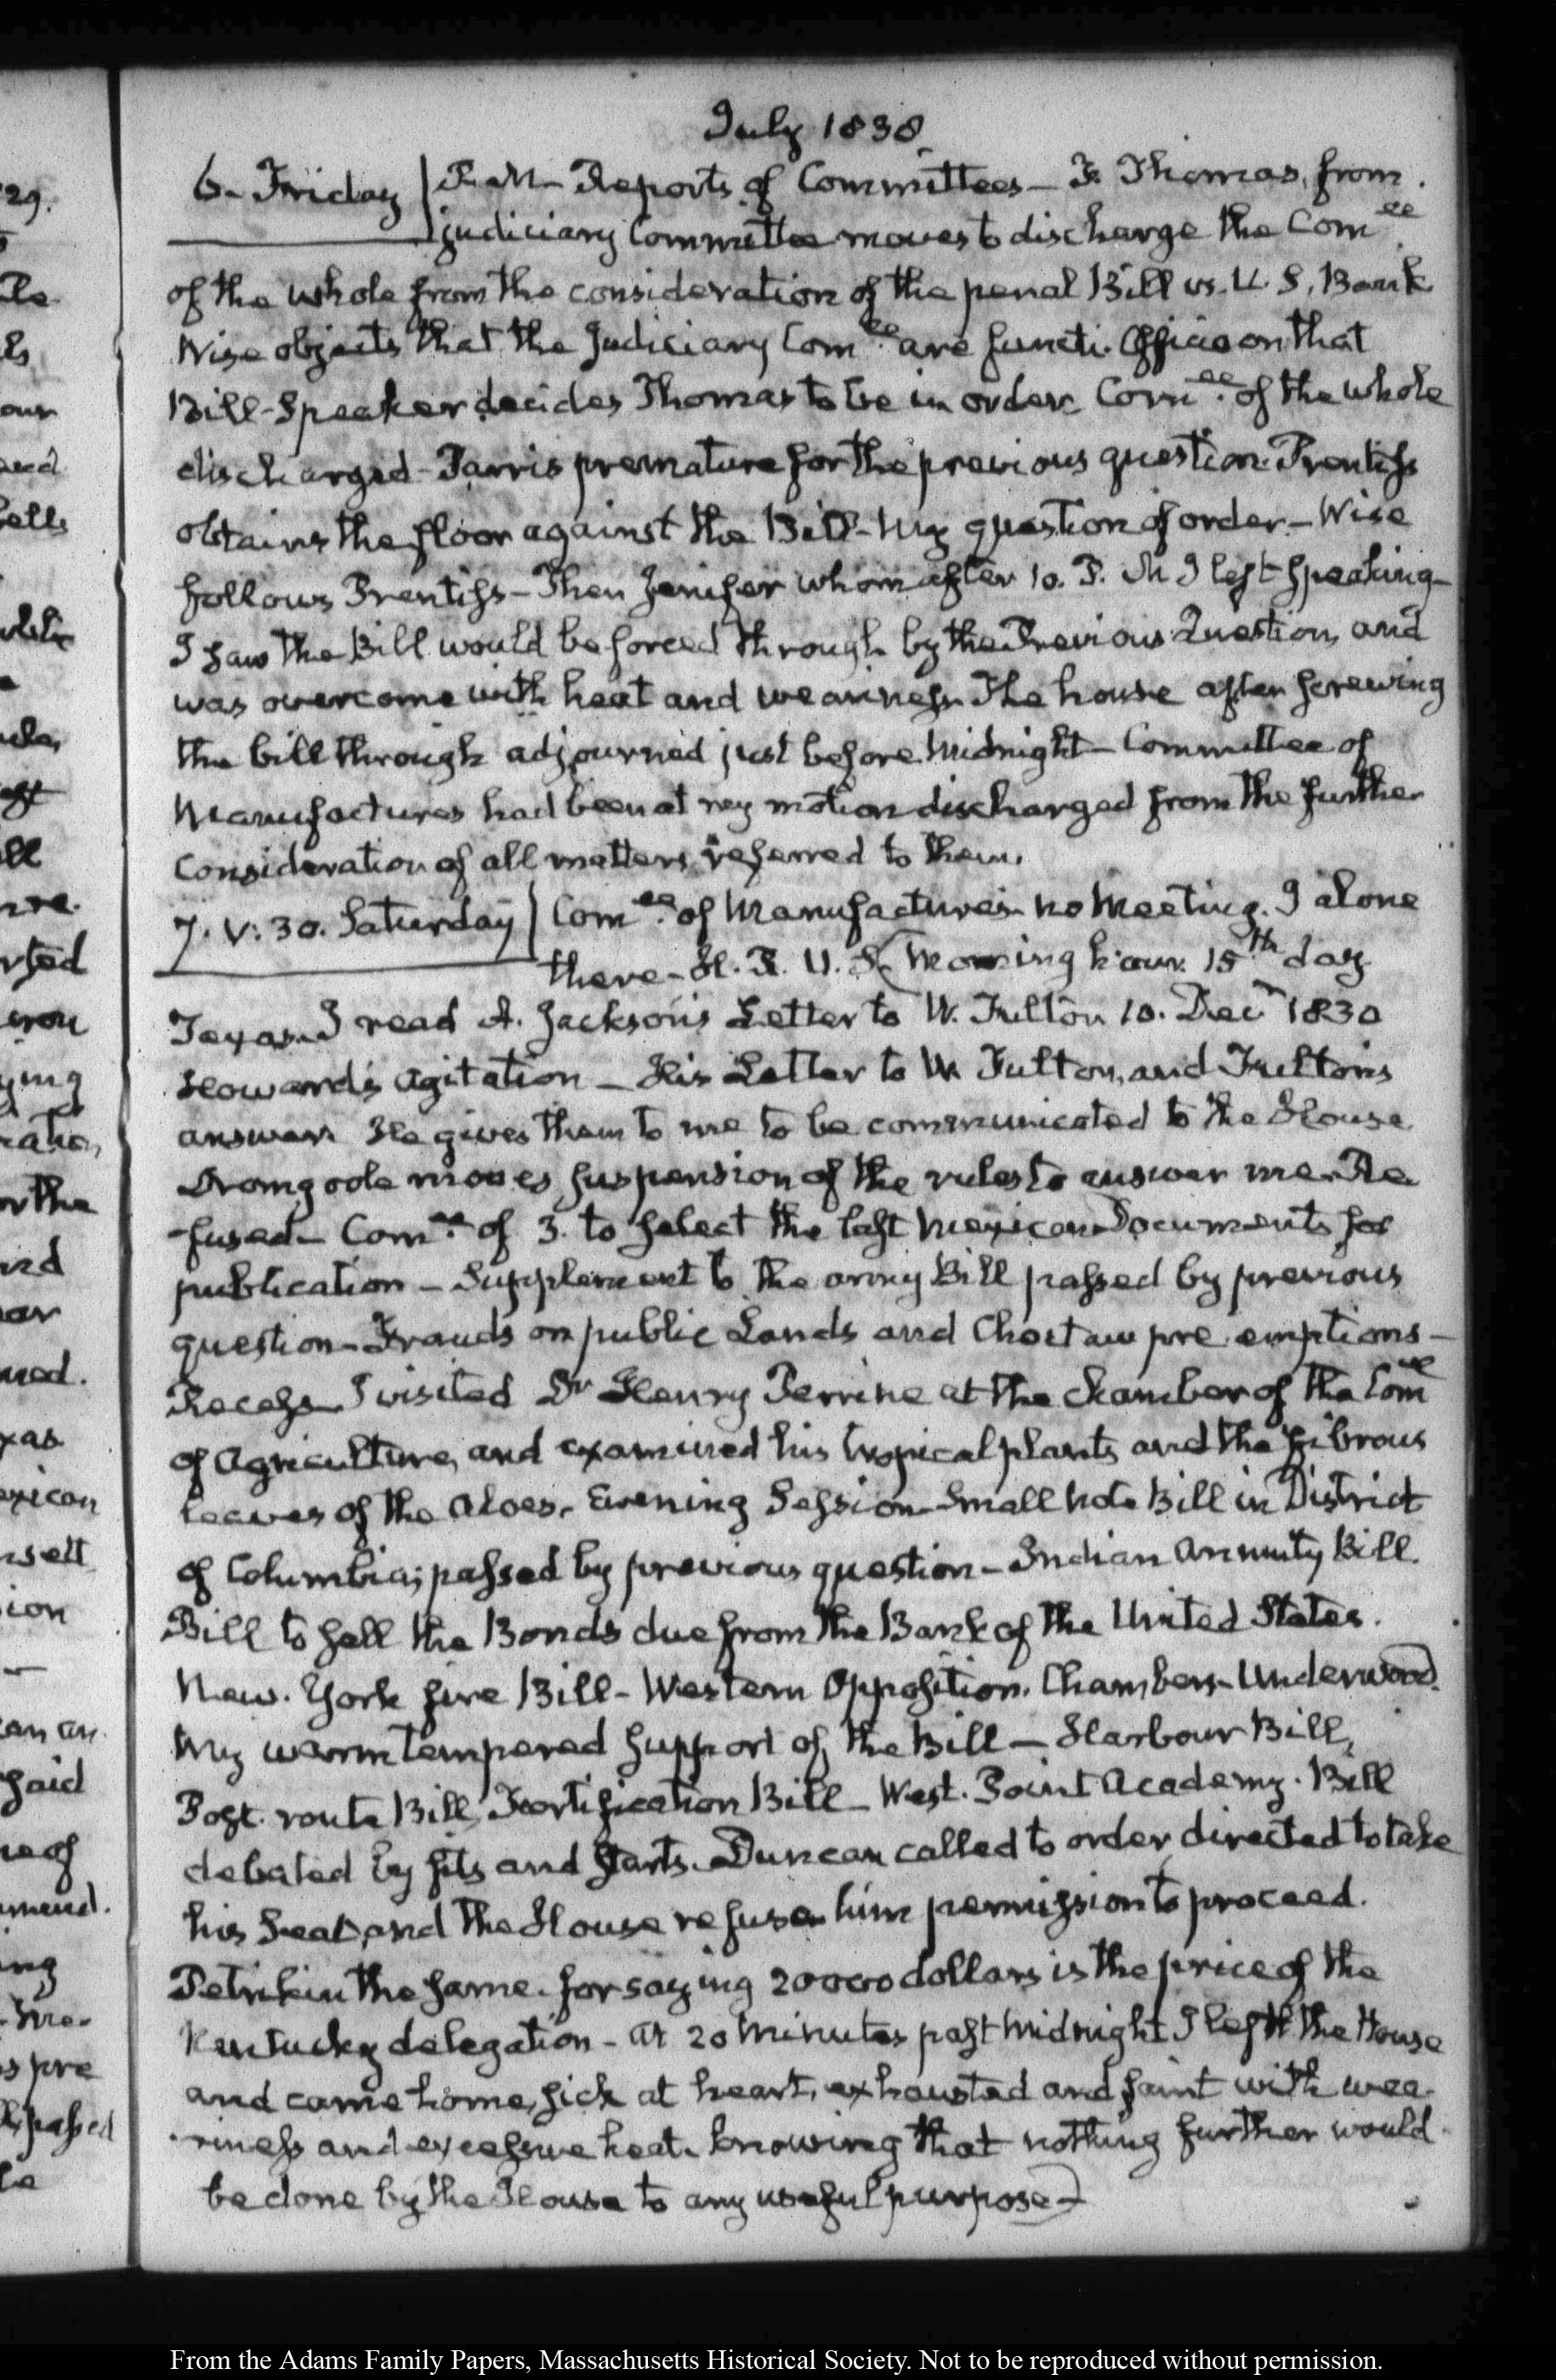 July 1838
6. Friday | P.M. Reports of Committees — F. Thomas, from
judiciary Committee moves to discharge the Com^ee
of the whole from the consideration of the penal Bill vs. U. S. Bank
Wise objects that the Judiciary Com^ee are functi Officio on that
Bill - Speaker decides Thomas to be in order. Com^ee of the whole
discharged - Parris premature for the previous question. Prentiss
obtains the floor against the Bill - My question of order - Wise
follows Prentiss - Then Jenifer whom after 10. P. M I left speaking -
I saw the Bill would be forced through by the Previous Question, and
was overcome with heat and weariness. The house after screwing
the bill through adjourned just before Midnight - Committee of
Manufactures had been at my motion discharged from the further
Consideration of all matters referred to them.
7. V: 30. Saturday | Com^ee of Manufactures no Meeting. I alone
there - H. R. U. S. Morning hour. 15^th day
Texas. I read A. Jackson's Letter to W. Fulton 10. Dec^r 1830
Howard's agitation - His Letter to W Fulton, and Fulton's
answer. He gives them to me to be communicated to the House
Dromgoole moves suspension of the rules to answer me. Re
-fused - Com^ee of 3. to select the last Mexican Documents for
publication - Supplement to the army Bill passed by previous
question - Frauds on public Lands and Choctaw pre emptions -
Recess I visited Dr Henry Perrine at the Chamber of the Com^ee
of Agriculture, and examined his tropical plants and the fibrous
leaves of the Aloes. Evening Session - Small note Bill in District
of Columbia; passed by previous question - Indian Annuity Bill.
Bill to sell the Bonds due from the Bank of the United States.
New. York fire Bill - Western Opposition. Chambers - Underwood.
My warm tempered support of the Bill - Harbour Bill,
Post. route Bill, Fortification Bill - West. Point Academy. Bill
debated by fits and starts. Duncan called to order, directed to take
his Seat, and the House refuses him permission to proceed.
Petrikin the same. for saying 20000 dollars is the price of the
Kentucky delegation - At 20 Minutes past Midnight I left the House
and came home, sick at heart, exhausted and faint with wea
riness and excessive heat. knowing that nothing further would
be done by the House to any useful purpose -
From the Adams Family Papers, Massachusetts Historical Society. Not to be reproduced without permission.